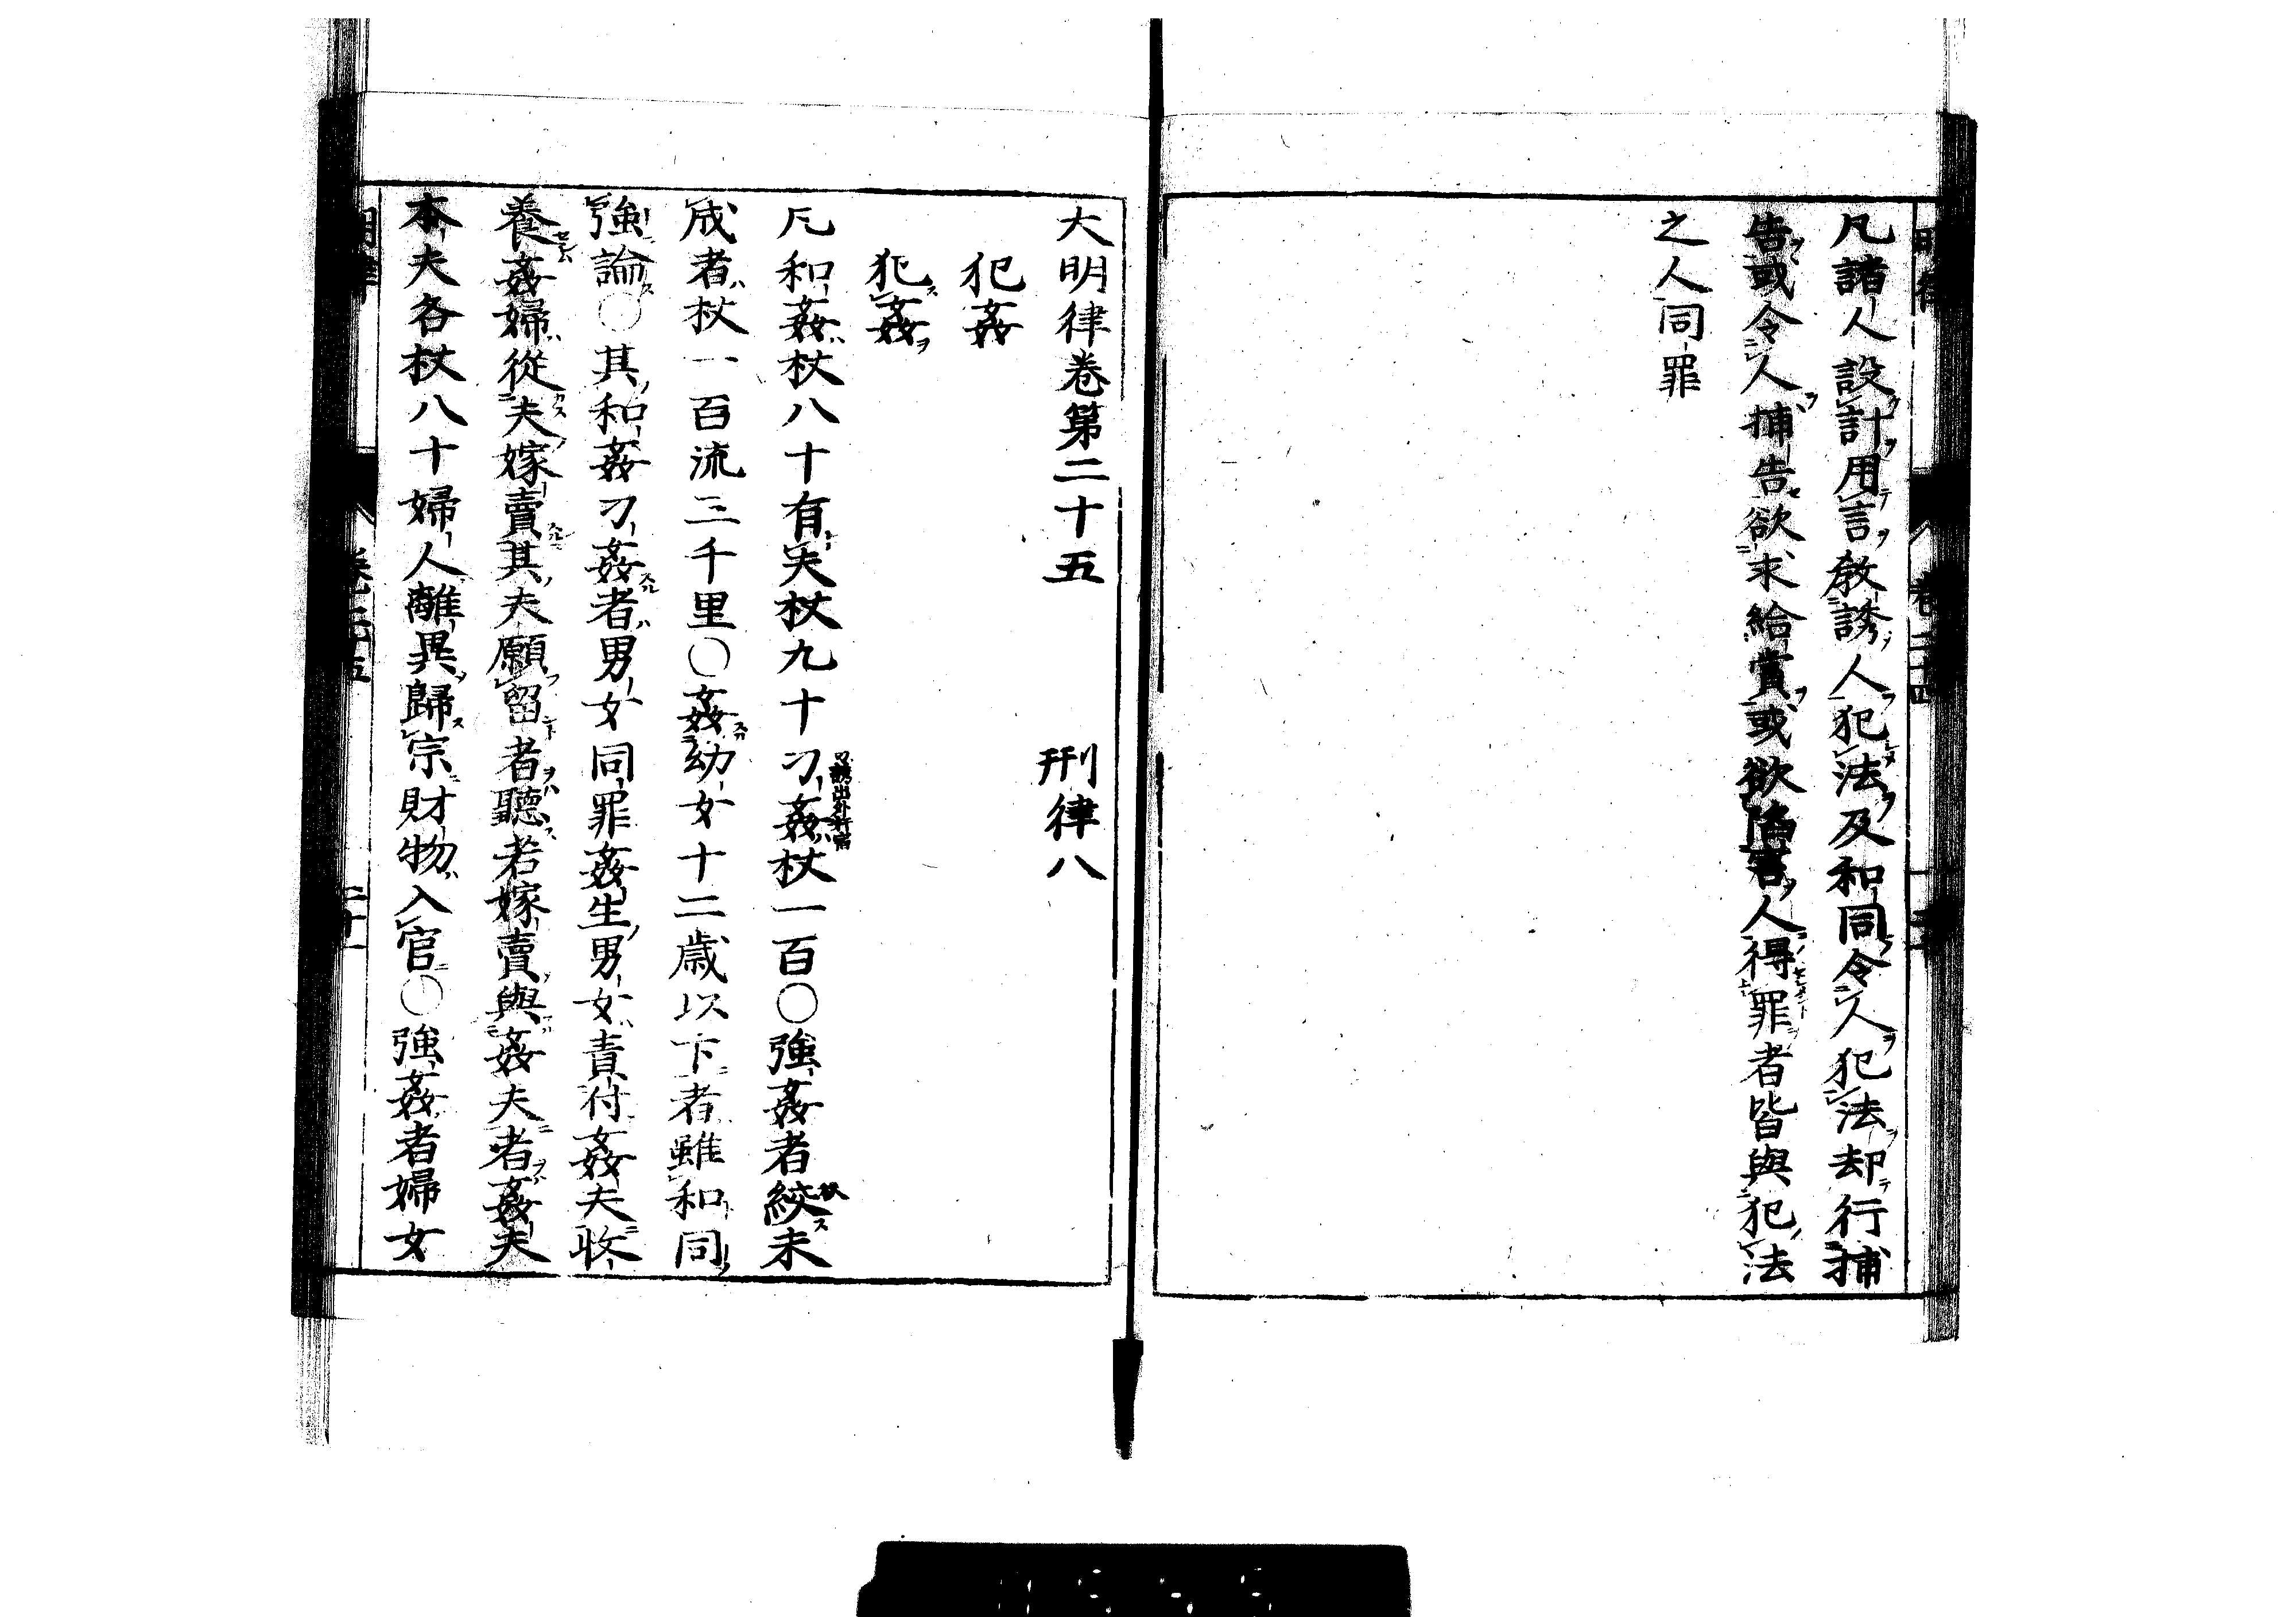 凡諸人設計用言敎誘人犯法及和同令人犯法却行捕
告或令人捕告欲求給賞或欲陷害人得罪者皆與犯法
之人同罪
大明律卷第二十五　　刑律八
犯姦
犯姦
凡和姦杖八十有夫杖九十刁姦杖一百○強姦者絞未
成者杖一百流三千里○姦幼女十二歳以下者雖和同
強論○其和姦刁姦者男女同罪姦生男女責付姦夫收
養姦婦從夫嫁賣其夫願留者聽若嫁賣與姦夫者姦夫
本夫各杖八十婦人離異歸宗財物入官○強姦者婦女